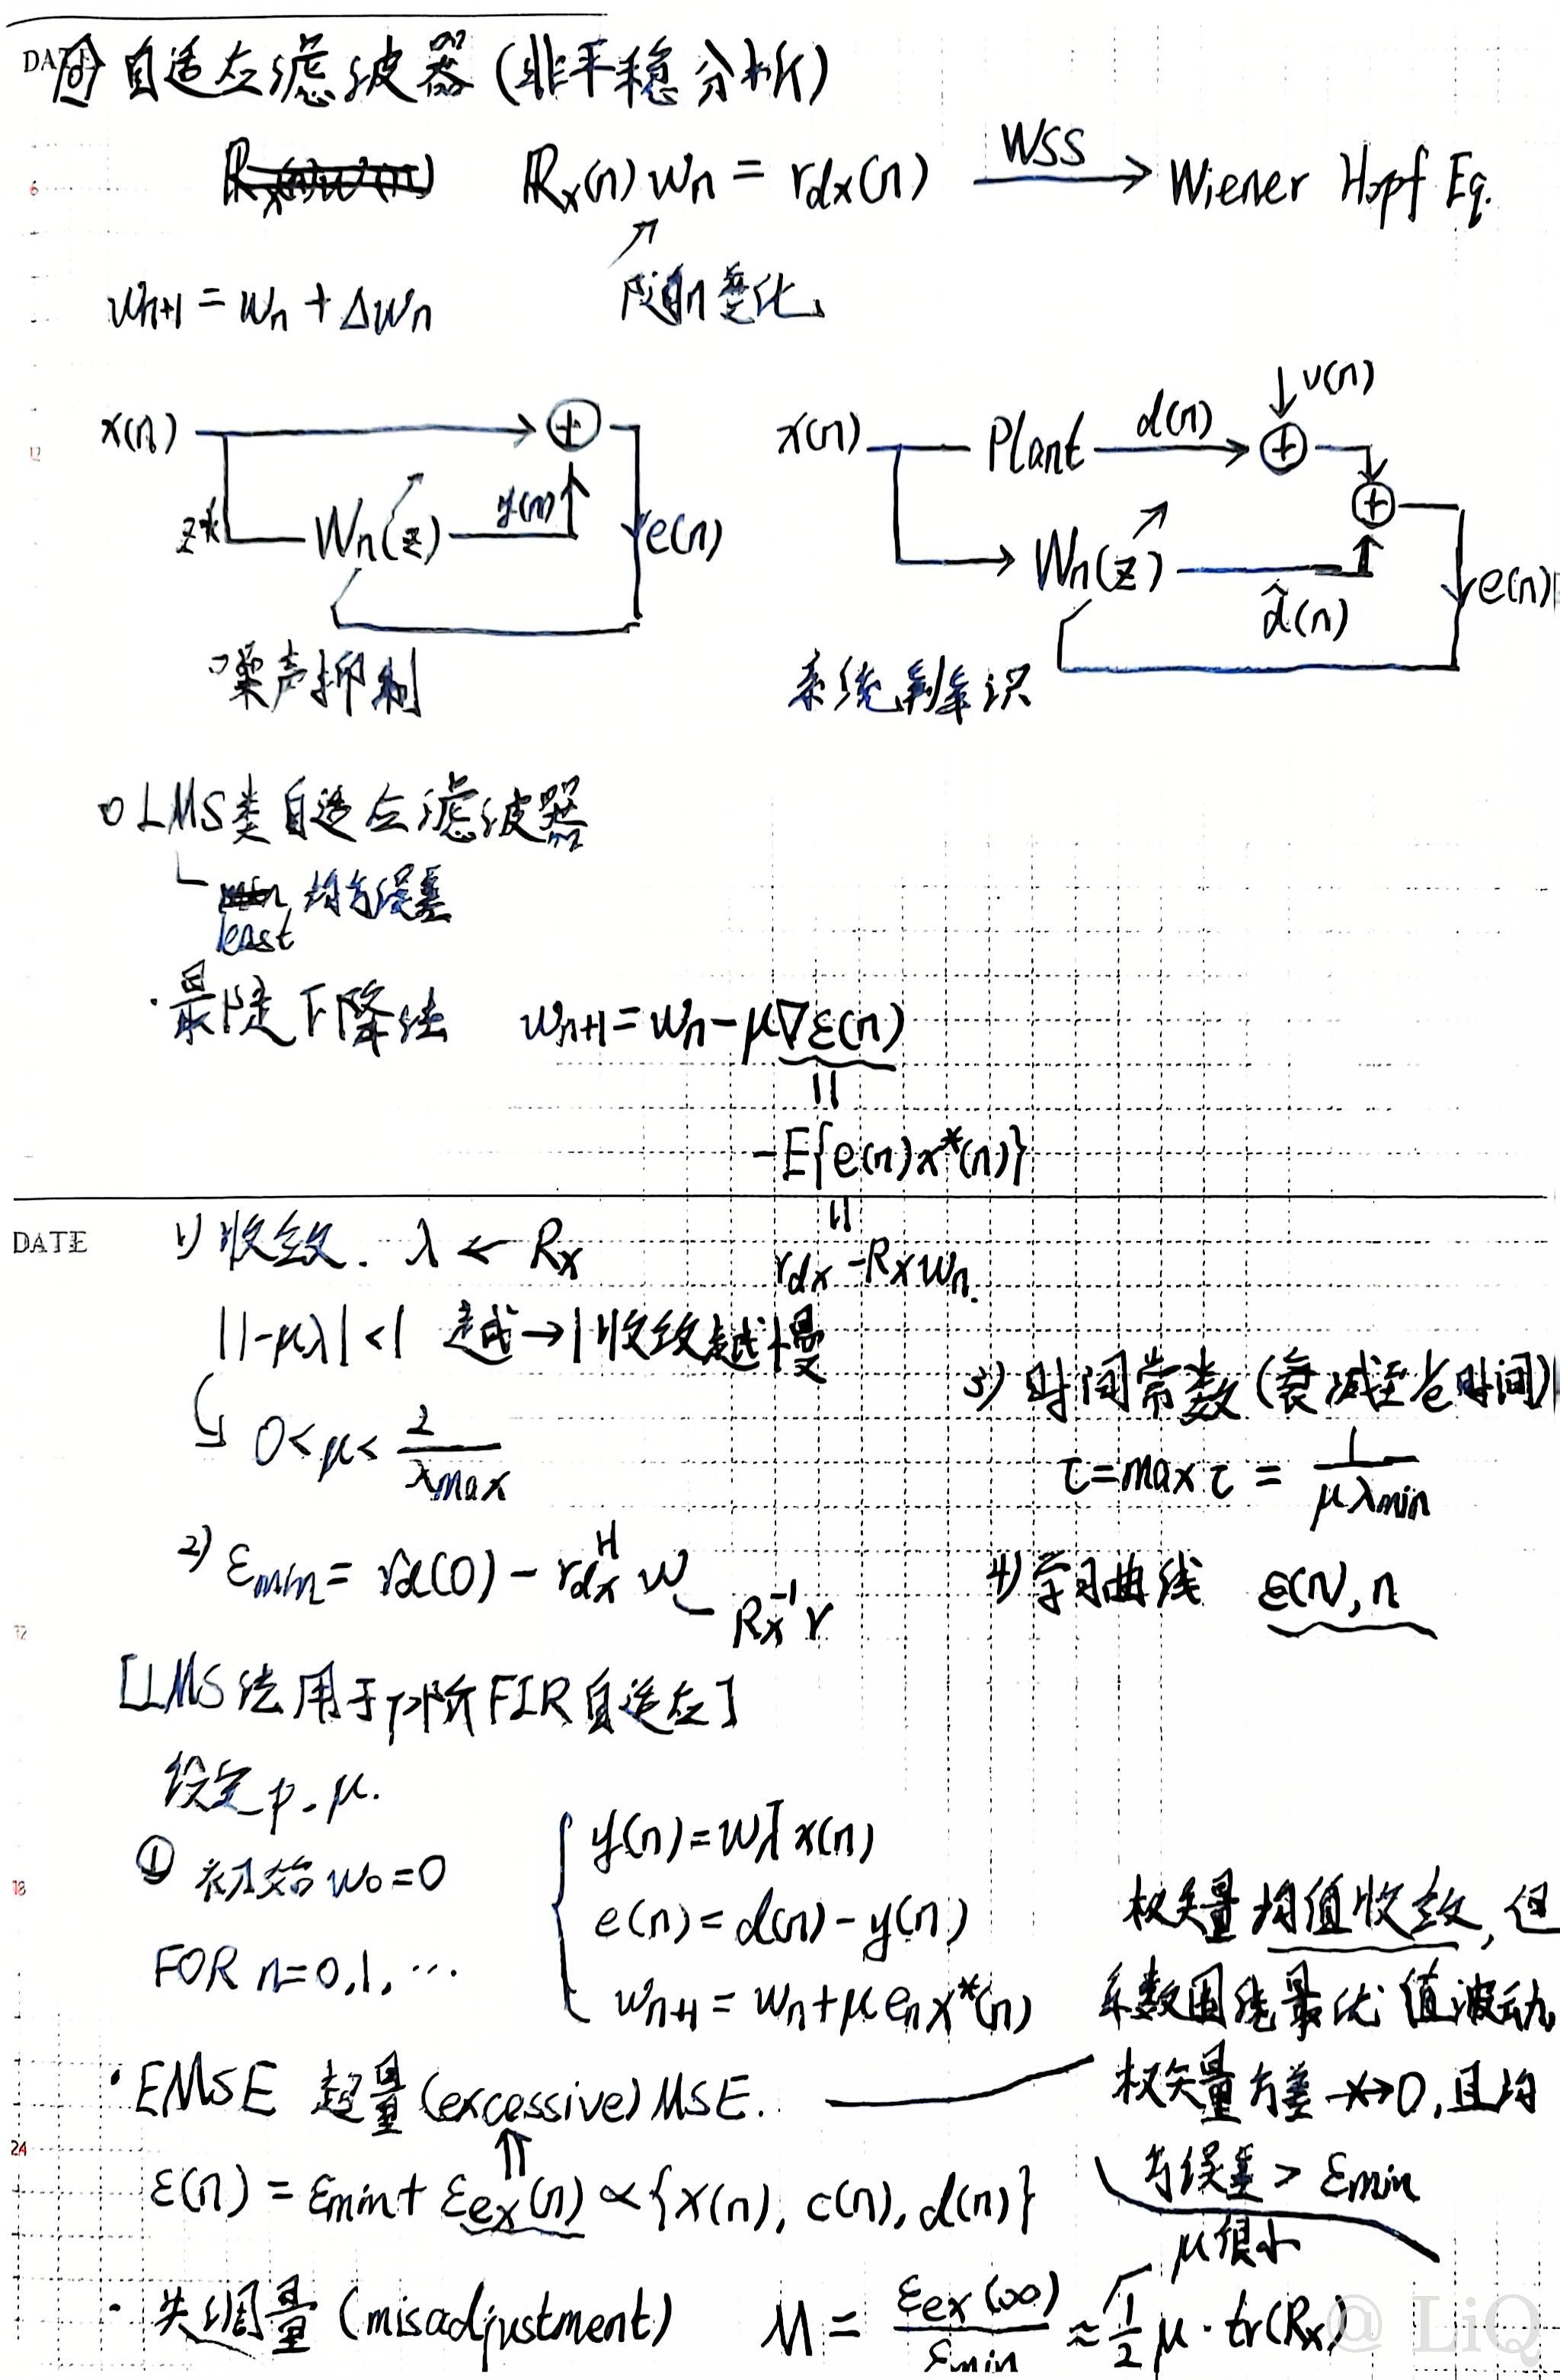 DATE
④ 自适应滤波器 (非平稳分析)
Rx(n)wn = rdx(n) WSS→ Wiener Hopf Eq.
wn+1 = wn + Δwn
随n变化
x(n) + z^-k Wn(z) y(n) e(n)
噪声抑制
x(n) Plant d(n) + v(n) + Wn(z) d̂(n) e(n)
系统辨识
○ LMS类自适应滤波器
least 均方误差
· 最陡下降法 wn+1 = wn - μ∇ε(n)
=
-E{e(n)x*(n)}
=
rdx - Rxwn.
DATE
1) 收敛. λ ← Rx
|1-μλ|<1 越→1收敛越慢
↳ 0<μ< 2/λmax
2) εmin = rd(0) - rdx^H w
Rx^-1 r
3) 时间常数 (衰减至1/e时间)
τ = max τ = 1/(μλmin)
4) 学习曲线 ε(n), n
[LMS法用于p阶FIR自适应]
设定 p、μ.
① 初始 w0=0
FOR n=0,1,…
y(n) = wn^T x(n)
e(n) = d(n) - y(n)
wn+1 = wn + μ en x*(n)
权矢量均值收敛, 但
系数围绕最优值波动,
权矢量方差↛0, 且均
方误差 > εmin
· EMSE 超量 (excessive) MSE.
⇑
ε(n) = εmin + εex(n) ∝ {x(n), c(n), d(n)}
μ很小
· 失调量 (misadjustment) M = εex(∞)/εmin ≈ 1/2 μ · tr(Rx)
@ LiQ
6
12
12
18
24